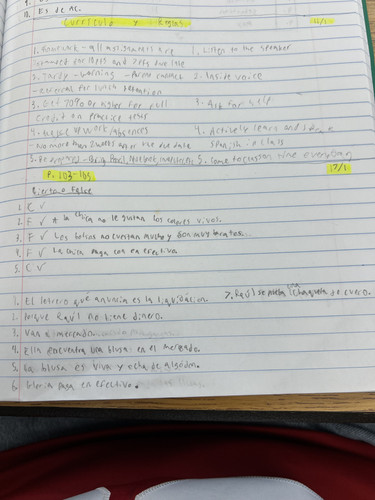 11. Es. de AC.
Currículo y Reglas 11/1
1. Homework - all assignments are 1. Listen to the speaker
for 100% and 70% due late
2. Tardy - warning - Parent contact 2. Inside voice
- referral for lunch detention
3. Get 70% or higher for full 3. Ask for help
credit on practice tests
4. Make up work / absences 4. Actively learn and
- No more than 2 weeks after the due date Spanish in class
5. Be prepared - Bring Pencil, Notebook, 5. Come to class on time everyday
P. 103-105 12/1
Cierto o False
1. C ✓
2. F ✓ A la no le gustan los colores vivos.
3. F ✓ Los bolsos no cuestan mucho y son muy baratos.
4. F ✓ La chica paga con en efectivo.
5. C ✓
1. El letrero que anuncia es la liquidación. 7. Raúl se prueba chaqueta de cuero.
2. Porque Raúl no tiene dinero.
3. Van a mercado.
4. Ella encuentra una blusa en el mercado.
5. La blusa es viva y echa de algodón.
6. Valeria paga en efectivo.